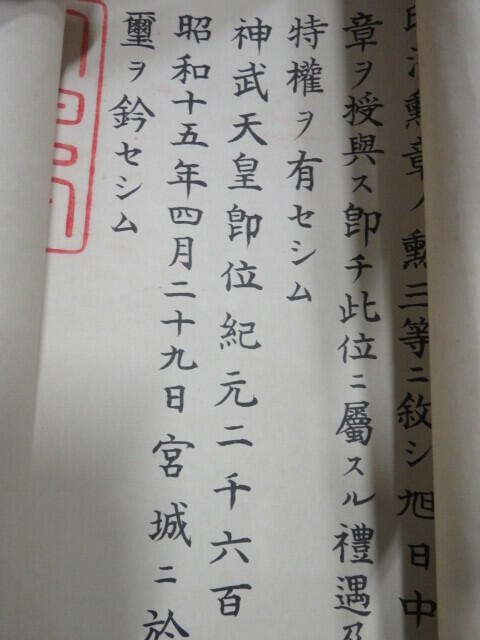 勲章ノ勲三等ニ敘シ旭日中
章ヲ授與ス卽チ此位ニ屬スル禮遇及
特權ヲ有セシム
神武天皇卽位紀元二千六百
昭和十五年四月二十九日宮城ニ於
璽ヲ鈐セシム